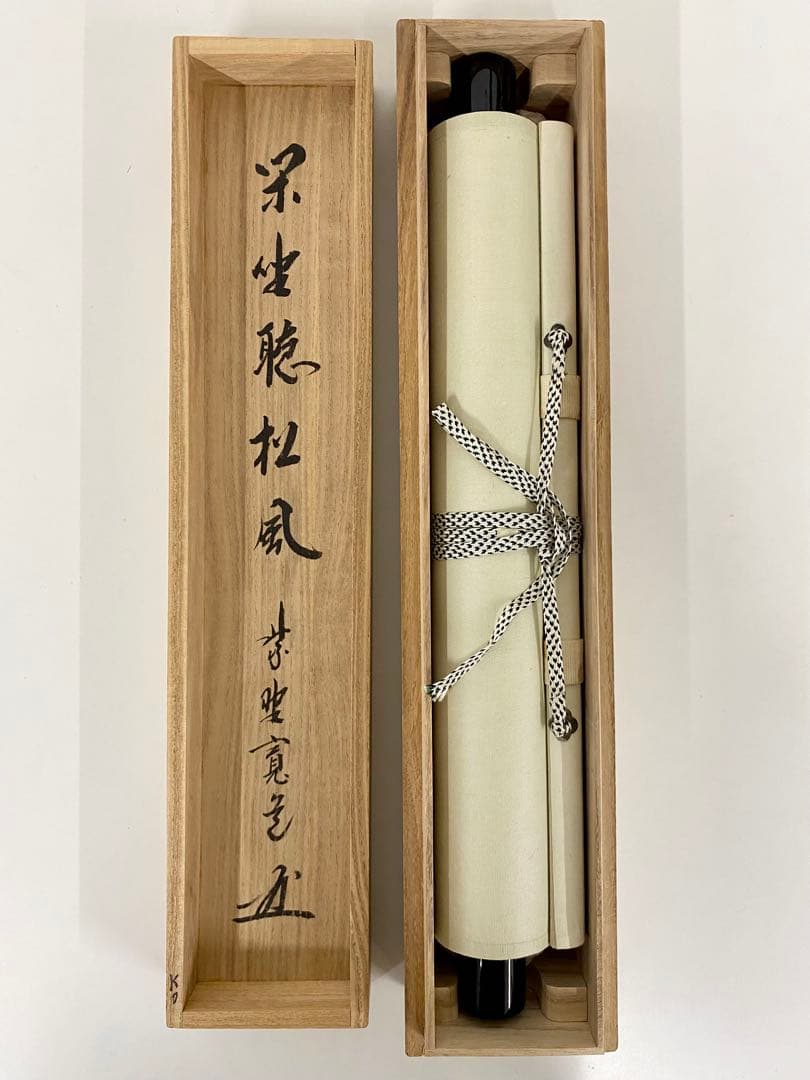 閑坐聴松風 紫野寛道
KO